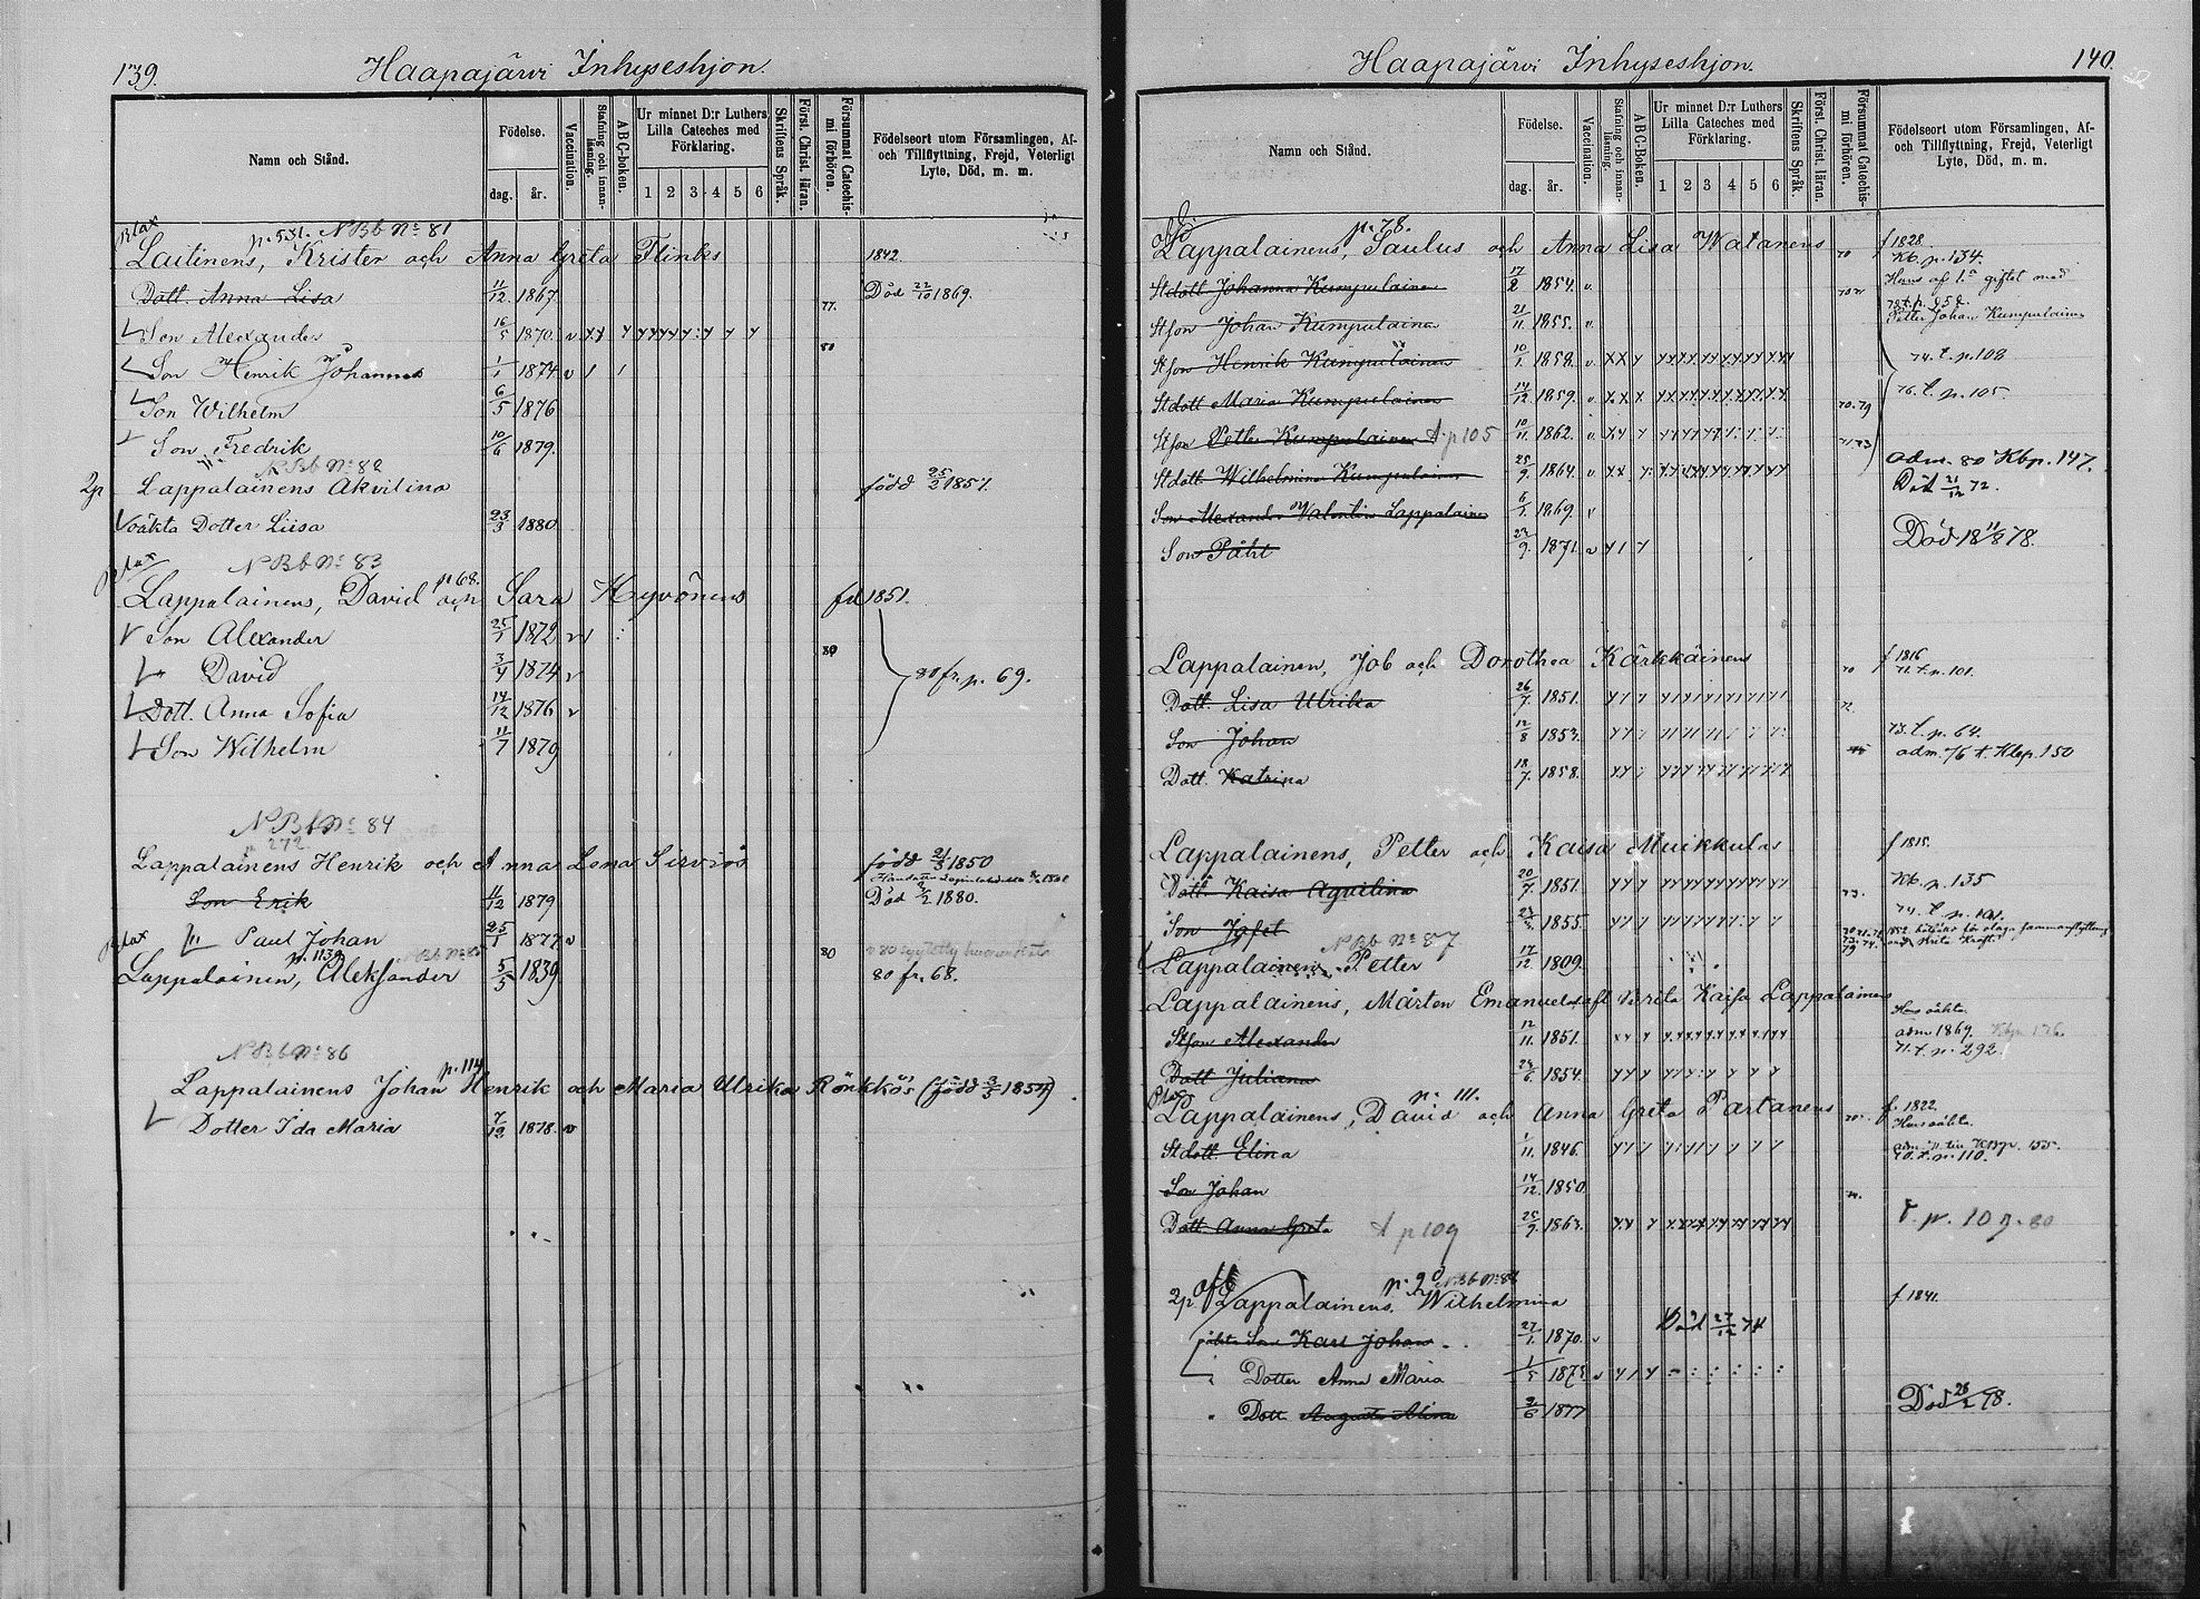 139.
Haapajärvi Inhyseshjon.
Namn och Stånd.
Födelse.
dag. år.
Vaccination.
Stafning och innanläsning.
ABC-boken.
Ur minnet D:r Luthers Lilla Cateches med Förklaring.
1 2 3 4 5 6
Skriftens Språk.
Först. Christ. läran.
Försummat Catechismi förhören.
Födelseort utom Församlingen, Af- och Tillflyttning, Frejd, Veterligt Lyte, Död, m. m.
p. 531. N Bb No 81
Laitinens, Krister och Anna Greta Flinks 1842.
Dott. Anna Lisa 11/12. 1867. Död 22/10 1869.
77.
Son Alexander 16/5 1870. v
80
Son Henrik Johannes 1/1 1874 v
Son Wilhelm 6/5 1876
Son Fredrik 10/6 1879.
N Bb No 82
2p Lappalainens Akvilina född 25/2 1857.
oäkta Dotter Liisa 23/3 1880
N Bb No 83
p. 68.
Lappalainens, David och Sara Hyvönens fd 1851.
Son Alexander 25/1 1872 v
80
" David 3/4 1874 v 80 fr. p. 69.
Dott. Anna Sofia 14/12 1876 v
Son Wilhelm 11/7 1879
N Bb No 84
p 272.
Lappalainens Henrik och Anna Lena Sirviös född 21/3 1850
Son Erik 11/12 1879 Död 2/2 1880.
" Paul Johan 25/1 1877 v 80
Lappalainen, Aleksander 5/5 1839 80 fr. 68.
N Bb No 86
p. 114
Lappalainens Johan Henrik och Maria Ulrika Rönkkös (född 3/5 1857)
Dotter Ida Maria 7/12 1878. v
Haapajärvi Inhyseshjon.
140.
Namn och Stånd.
Födelse.
dag. år.
Vaccination.
Stafning och innanläsning.
ABC-Boken.
Ur minnet D:r Luthers Lilla Cateches med Förklaring.
1 2 3 4 5 6
Skriftens Språk.
Först. Christ. läran.
Försummat Catechismi förhören.
Födelseort utom Församlingen, Af- och Tillflyttning, Frejd, Veterligt Lyte, Död, m. m.
p. 78.
Lappalainens, Saulus och Anna Lisa Watanens 70 f 1828.
Kb. p. 134.
Stdott Johanna Kumpulainen 17/2 1854. v.
Petter Johan Kumpulainen
Stson Johan Kumpulainen 21/11. 1855. v.
Stson Henrik Kumpulainen 10/1. 1858. v. 74. t. p. 108
Stdott Maria Kumpulainen 14/12 1859. v. 70.79 76. t. p. 105.
Stson Petter Kumpulainen t p 105 10/11. 1862. v.
Stdott Wilhelmina Kumpulainen 25/9. 1864. v adm. 80 Kbp. 147.
Död 21/12 72.
Son Alexander Valentin Lappalainen 6/1. 1869. v
Son Påhl 22/9. 1871. v Död 18 11/8 78.
Lappalainen, Job och Dorothea Kärkkäinens 70 f 1816
71. t. p. 101.
Dott. Lisa Ulrika 26/7. 1851. 72.
Son Johan 12/8 1853. 73. t. p. 64.
adm. 76 t. Kbp. 150
Dott. Katrina 18/7. 1858.
Lappalainens, Petter och Kaisa Muikkulas f 1815.
Dott. Kaisa Aquilina 20/7. 1851. 73. Kb. p. 135
74. t. p. 101.
Son Jafet 1855.
N Bb No 87
Lappalainens Petter 17/12. 1809.
Lappalainens, Mårten Emanuel Brita Kaisa Lappalainens
Stson Alexander 12/11. 1851. adm 1869.
71. t. p. 292.
Dott Juliana 24/6. 1854.
p. 111.
Lappalainens, David och Anna Greta Partanens f. 1822.
Stdott. Elina 1/11. 1846. 70. t. p. 110.
Son Johan 14/12. 1850.
Dott Anna Greta t p 109 25/9. 1863. t. p. 109. 80
p. 90 N Bb No 88
2p Lappalainens, Wilhelmina f 1841.
oäkta Son Karl Johan 27/1. 1870. v Död 27/12 74
Dotter Anna Maria 1/5 1873 v
Dott Augusta Alina 2/6 1877 Död 28/2 78.